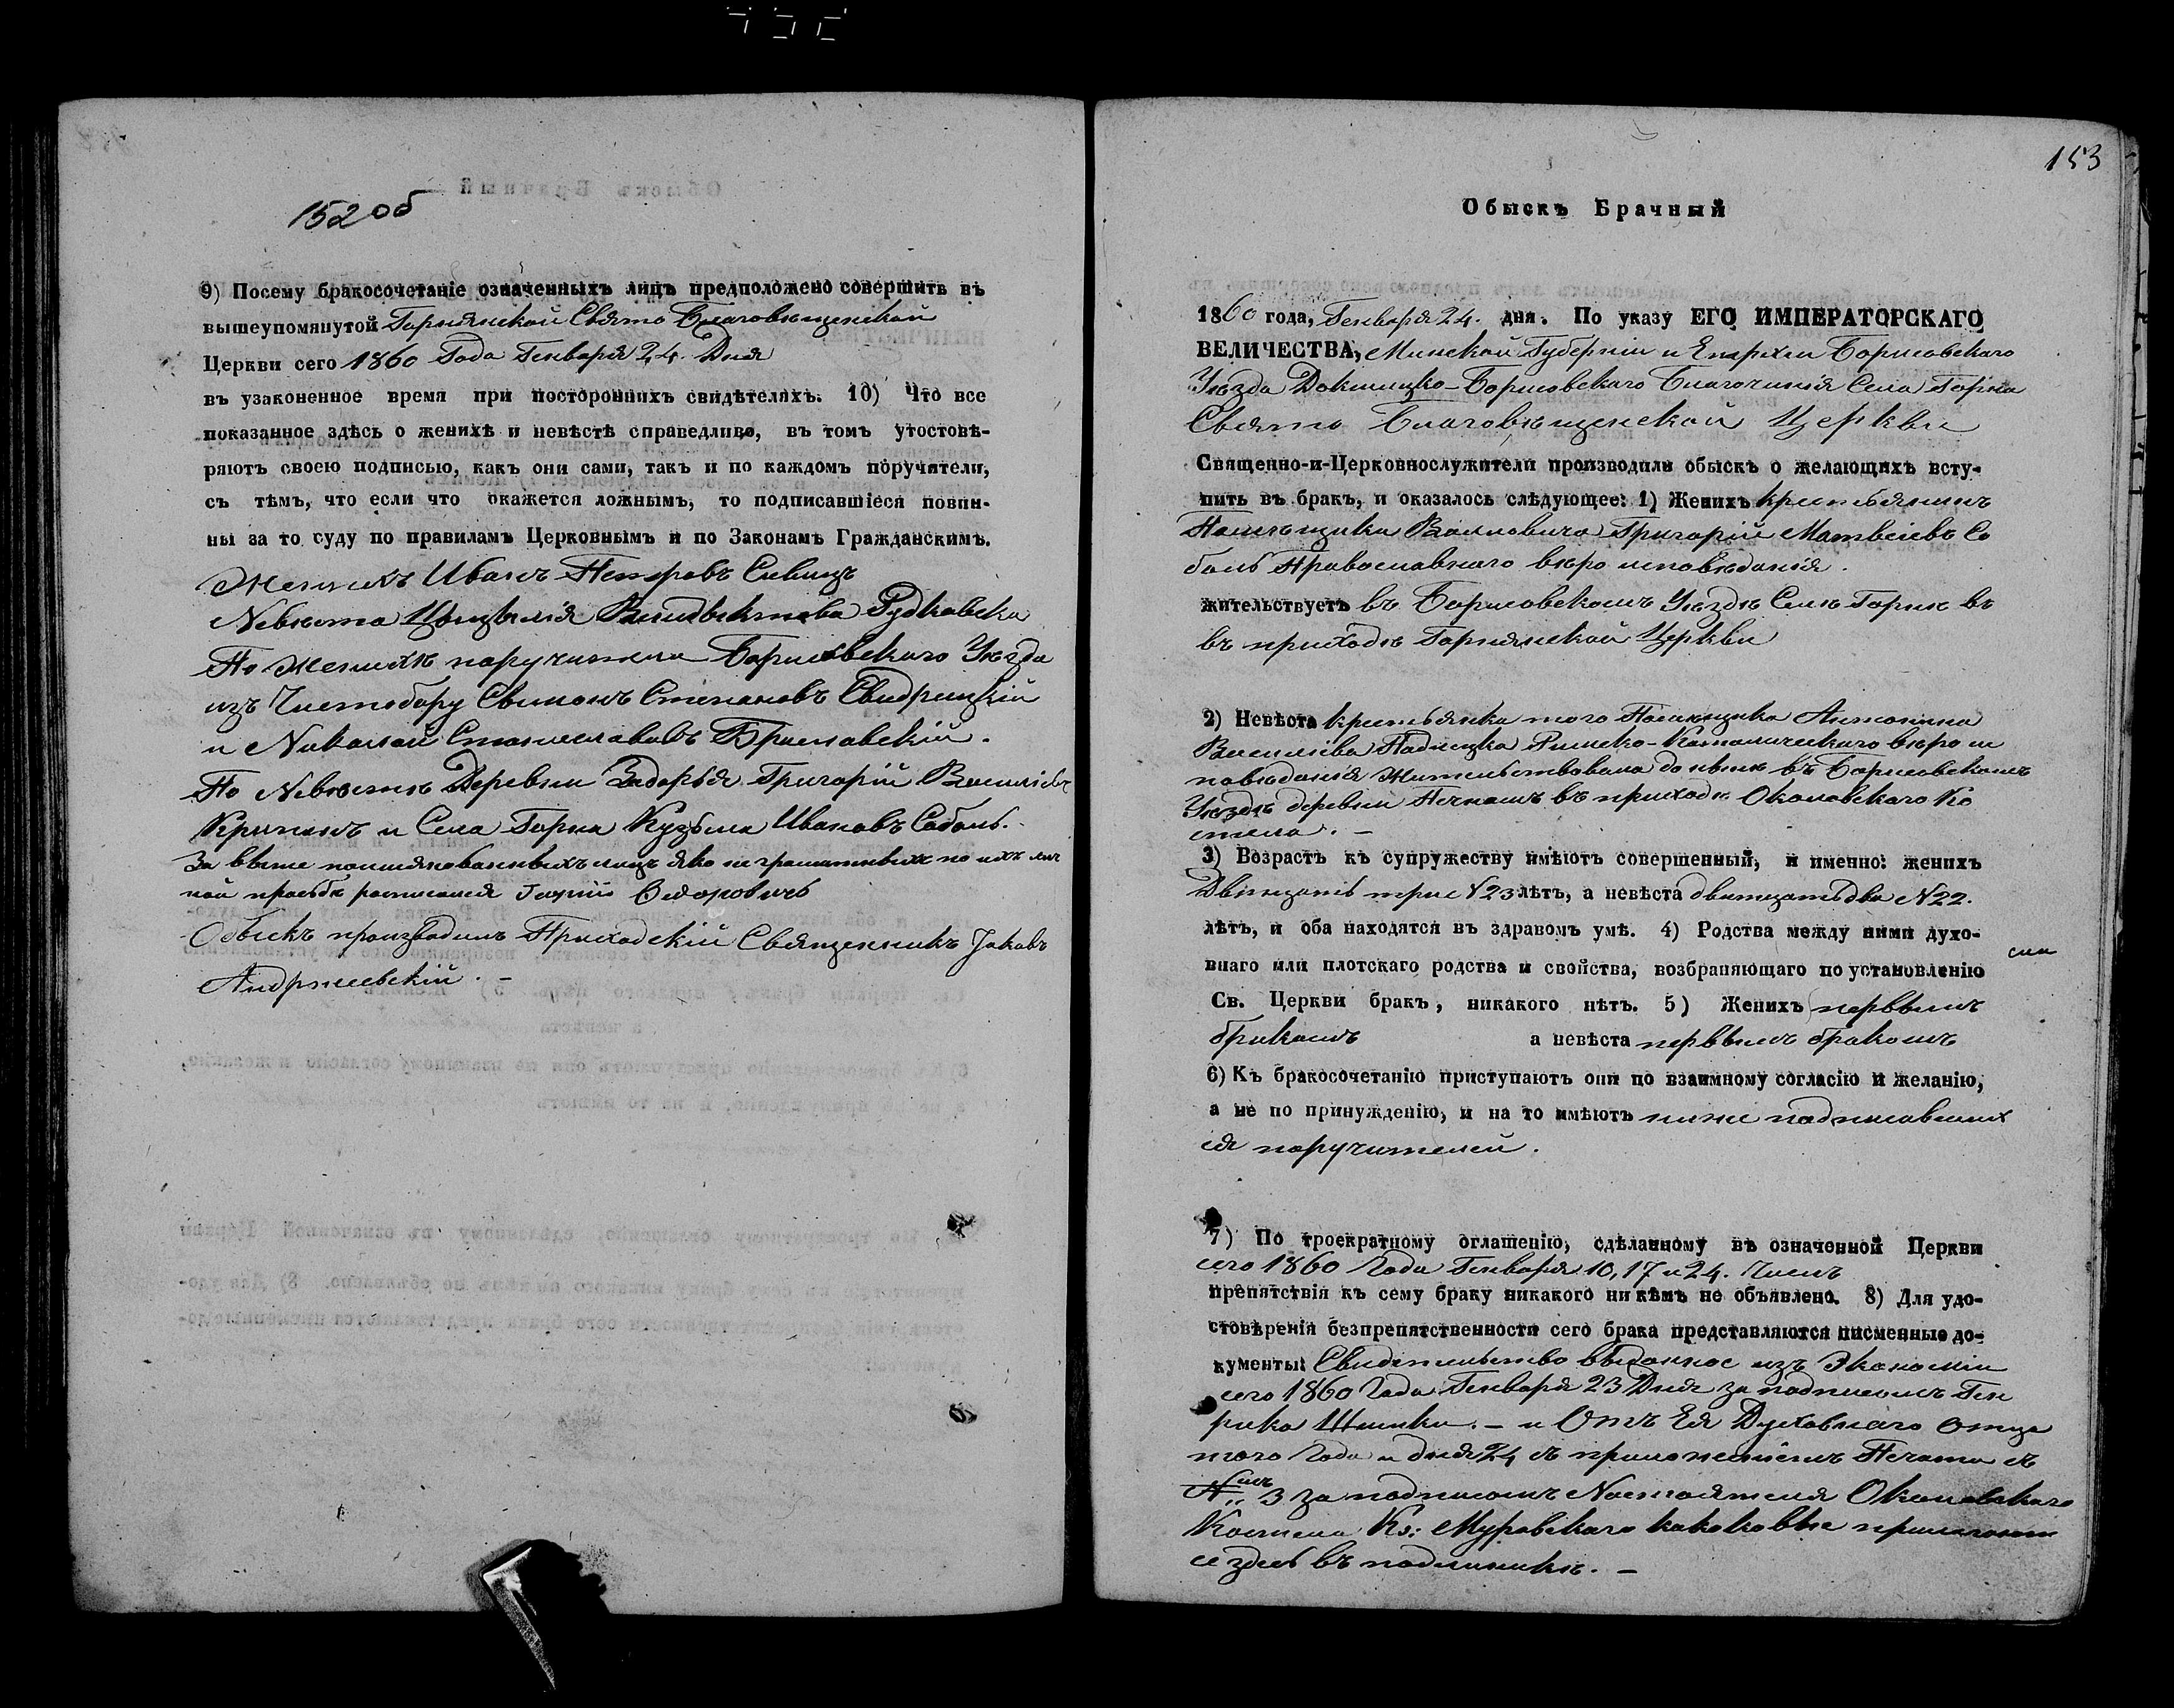 152 об
9) Посему бракосочетаніе означенныхъ лицъ предположено совершить въ
вышеупомянутой Горнянской Свято Благовѣщенской
Церкви сего 1860 Года Генваря 24. Дня
въ узаконенное время при постороннихъ свидѣтеляхъ. 10) Что все
показанное здѣсь о женихѣ и невѣстѣ справедливо, въ томъ утостовѣ-
ряютъ своею подписью, какъ они сами, такъ и по каждомъ поручители,
съ тѣмъ, что если что окажется ложнымъ, то подписавшіеся повин-
ны за то суду по правиламъ Церковнымъ и по Законамъ Гражданскимъ.
Женихъ Иванъ Петровъ
Невѣста Рудковска
По женихѣ поручители Борисовскаго Уѣзда
изъ Чистобору Степановъ Свидрицкій
и Николай Станиславовъ
По Невѣстѣ Деревни Задорья Григорій Василіевъ
и Села Горна Кузьма Ивановъ Соболь.
За выше поимянованныхъ лицъ яко неграмотныхъ по ихъ лич
ной прозьбѣ росписался Федоровичъ
Обыскъ производилъ Приходскій Священникъ Іаковъ
Андржеевскій. –
153
Обыскъ Брачный
1860 года, Генваря 24. дня. По указу ЕГО ИМПЕРАТОРСКАГО
ВЕЛИЧЕСТВА, Минской Губерніи и Епархіи Борисовскаго
Уѣзда Докшицко-Борисовскаго Благочинія Села Горна
Свято Благовѣщенской Церкви
Священно-и-Церковнослужители производили обыскъ о желающихъ всту-
пить въ бракъ, и оказалось слѣдующее: 1) Женихъ крестьянинъ
Помѣщика Григорій Матвеіевъ Со
боль Православнаго вѣро исповѣданія.
жительствуетъ въ Борисовскомъ Уѣздѣ Селѣ Горнѣ въ
въ приходѣ Горнянской Церкви
2) Невѣста крестьянка того Помѣщика Антонина
Василіева Римско-Католическаго вѣро ис
повѣданія жительствовала до нынѣ въ Борисовскомъ
Уѣздѣ деревни въ приходѣ Околовскаго Ко
стела. –
3) Возрастъ къ супружеству имѣютъ совершенный, и именно: женихъ
Двадцать три N 23 лѣтъ, а невѣста двадцать два N 22.
лѣтъ, и оба находятся въ здравомъ умѣ. 4) Родства между ними духо-
внаго или плотскаго родства и свойства, возбраняющаго по установленію
Св. Церкви бракъ, никакого нѣтъ. 5) Женихъ первымъ
бракомъ а невѣста первымъ бракомъ
6) Къ бракосочетанію приступаютъ они по взаимному согласію и желанію,
а не по принужденію, и на то имѣютъ ниже подписавших
ся поручителей.
7) По троекратному оглашенію, сдѣланному въ означенной Церкви
сего 1860 Года Генваря 10, 17 и 24. Числъ
препятствія къ сему браку никакого ни кѣмъ не объявлено. 8) Для удо-
стовѣренія безпрепятственности сего брака представляются писменные до-
кументы: Свидетельство выданное изъ Экономіи
сего 1860 Года Генваря 23 Дня за подписомъ Ген
рика – и Отъ Ея Духовнаго Отца
того Года и дня 24 съ приложеніемъ Печати съ
3 за подписомъ Настоятеля Околовскаго
Костела Кз: Муровскаго каковые прилагают
ся здесь въ подлинникѣ. –